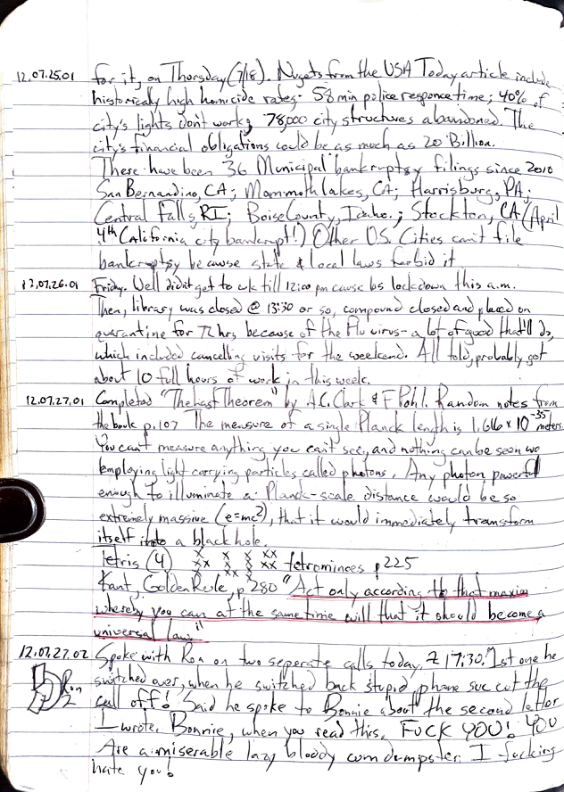 12.07.25.01 for it, on Thursday (7/18). Nugets from the USA Today article include
historically high homicide rates; 58 min police responce time; 40% of
city's lights don't work; 78,000 city structures abandoned. The
city's financial obligations could be as much as 20 Billion.
There have been 36 Municipal bankruptsy filings since 2010
San Bernandino, CA; Mammoth Lakes, CA; Harrisburg, PA;
Central Falls, RI; Boise County, Idaho.; Stockton, CA (April
4th California city bankrupt!) Other U.S. Cities can't file
bankruptsy because state & local laws forbid it.
12.07.26.01 Friday. Well didn't get to wk till 12:00 pm cause bs lockdown this a.m.
Then, library was closed @ 13:30 or so, compound closed and placed on
quarantine for 72 hrs because of the Flu virus - a lot of good that'll do,
which included cancelling visits for the weekend. All told, probably got
about 10 full hours of work in this week.
12.07.27.01 Completed "The Last Theorem" by A.C. Clark & F Pohl. Random notes from
the book p.107 The measure of a single Planck length is 1.616 x 10⁻³⁵ meters.
You can't measure anything you can't see, and nothing can be seen w/o
employing light carrying particles called photons. Any photon powerful
enough to illuminate a Planck-scale distance would be so
extremely massive (e=mc²), that it would immediately transform
itself into a black hole.
Tetris (4) tetrominoes p225
Kant, Golden Rule, p280 "Act only according to that maxim
whereby you can at the same time will that it should become a
universal law."
12.07.27.02 Spoke with Ron on two seperate calls today, 17:30. 1st one he
Ron 2 switched over, when he switched back stupid phone svc cut the
call off! Said he spoke to Bonnie about the second letter
I wrote. Bonnie, when you read this, FUCK YOU! YOU
Are a miserable lazy bloody cumdumpster. I fucking
hate you!